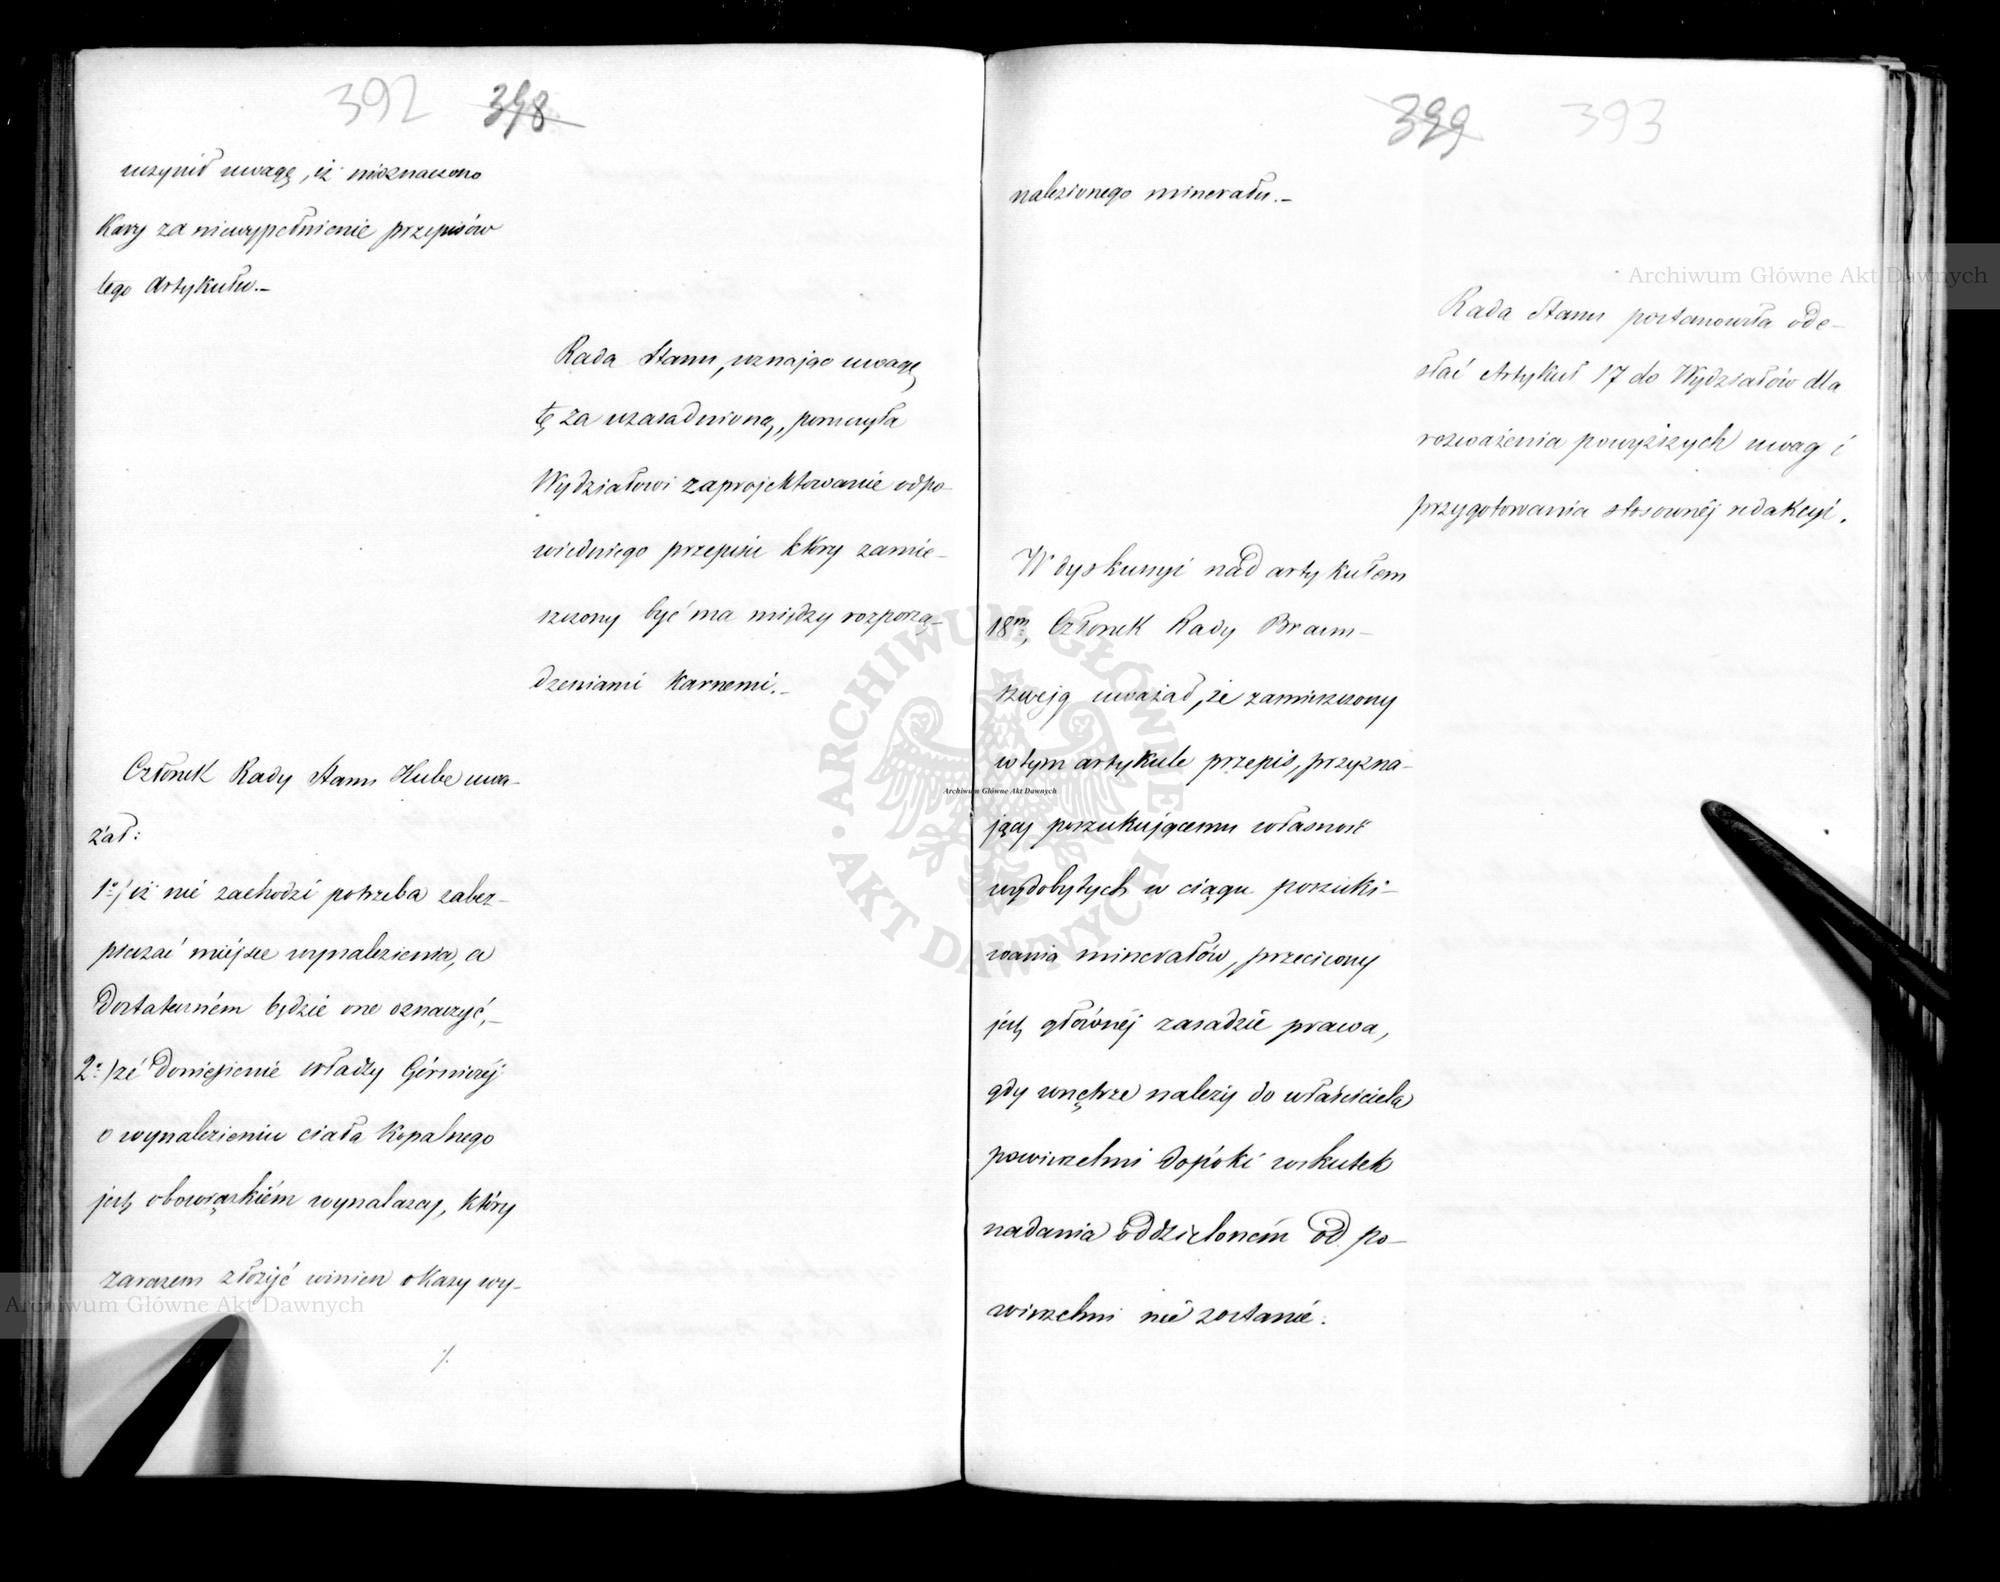 392 398
uczynił uwagę, iż nieoznaczono
Kary za niewypełnienie przepisów
tego Artykułu.–
Rada Stanu, uznając uwagę
tę za uzasadnioną, poruczyła
Wydziałowi zaprojektowanie odpo-
wiedniego przepisu który zamie-
szczony być ma między rozporzą-
dzeniami Karnemi.–
Członek Rady Stanu Hube uwa-
żał:
1º/ iż nie zachodzi potrzeba zabez-
pieczać miéjsce wynalezienia, a
dostateczném będzie one oznaczyć,–
2º/ że doniesienie władzy Górniczéj
o wynalezieniu ciała Kopalnego
jest obowiązkiém wynalazcy, który
zarazem złożyć winien okazy wy-
./.
399 393
nalezionego minerału.–
Rada Stanu postanowiła ode-
słać Artykuł 17 do Wydziałów dla
rozważenia powyższych uwag i
przygotowania stosownéj redakcyi.
W dyskussyi nad artykułem
18m, Członek Rady Braun-
szwejg uważał, że zamieszczony
w tym artykule przepis, przyzna-
jący poszukującemu własność
wydobytych w ciągu poszuki-
wania minerałów, przeciwny
jest głównéj zasadzie prawa,
gdy wnętrze należy do właściciela
powierzchni dopóki wskutek
nadania oddzieloném od po-
wierzchni nie zostanie.
Archiwum Główne Akt Dawnych
Archiwum Główne Akt Dawnych
Archiwum Główne Akt Dawnych
ARCHIWUM GŁÓWNE
AKT DAWNYCH